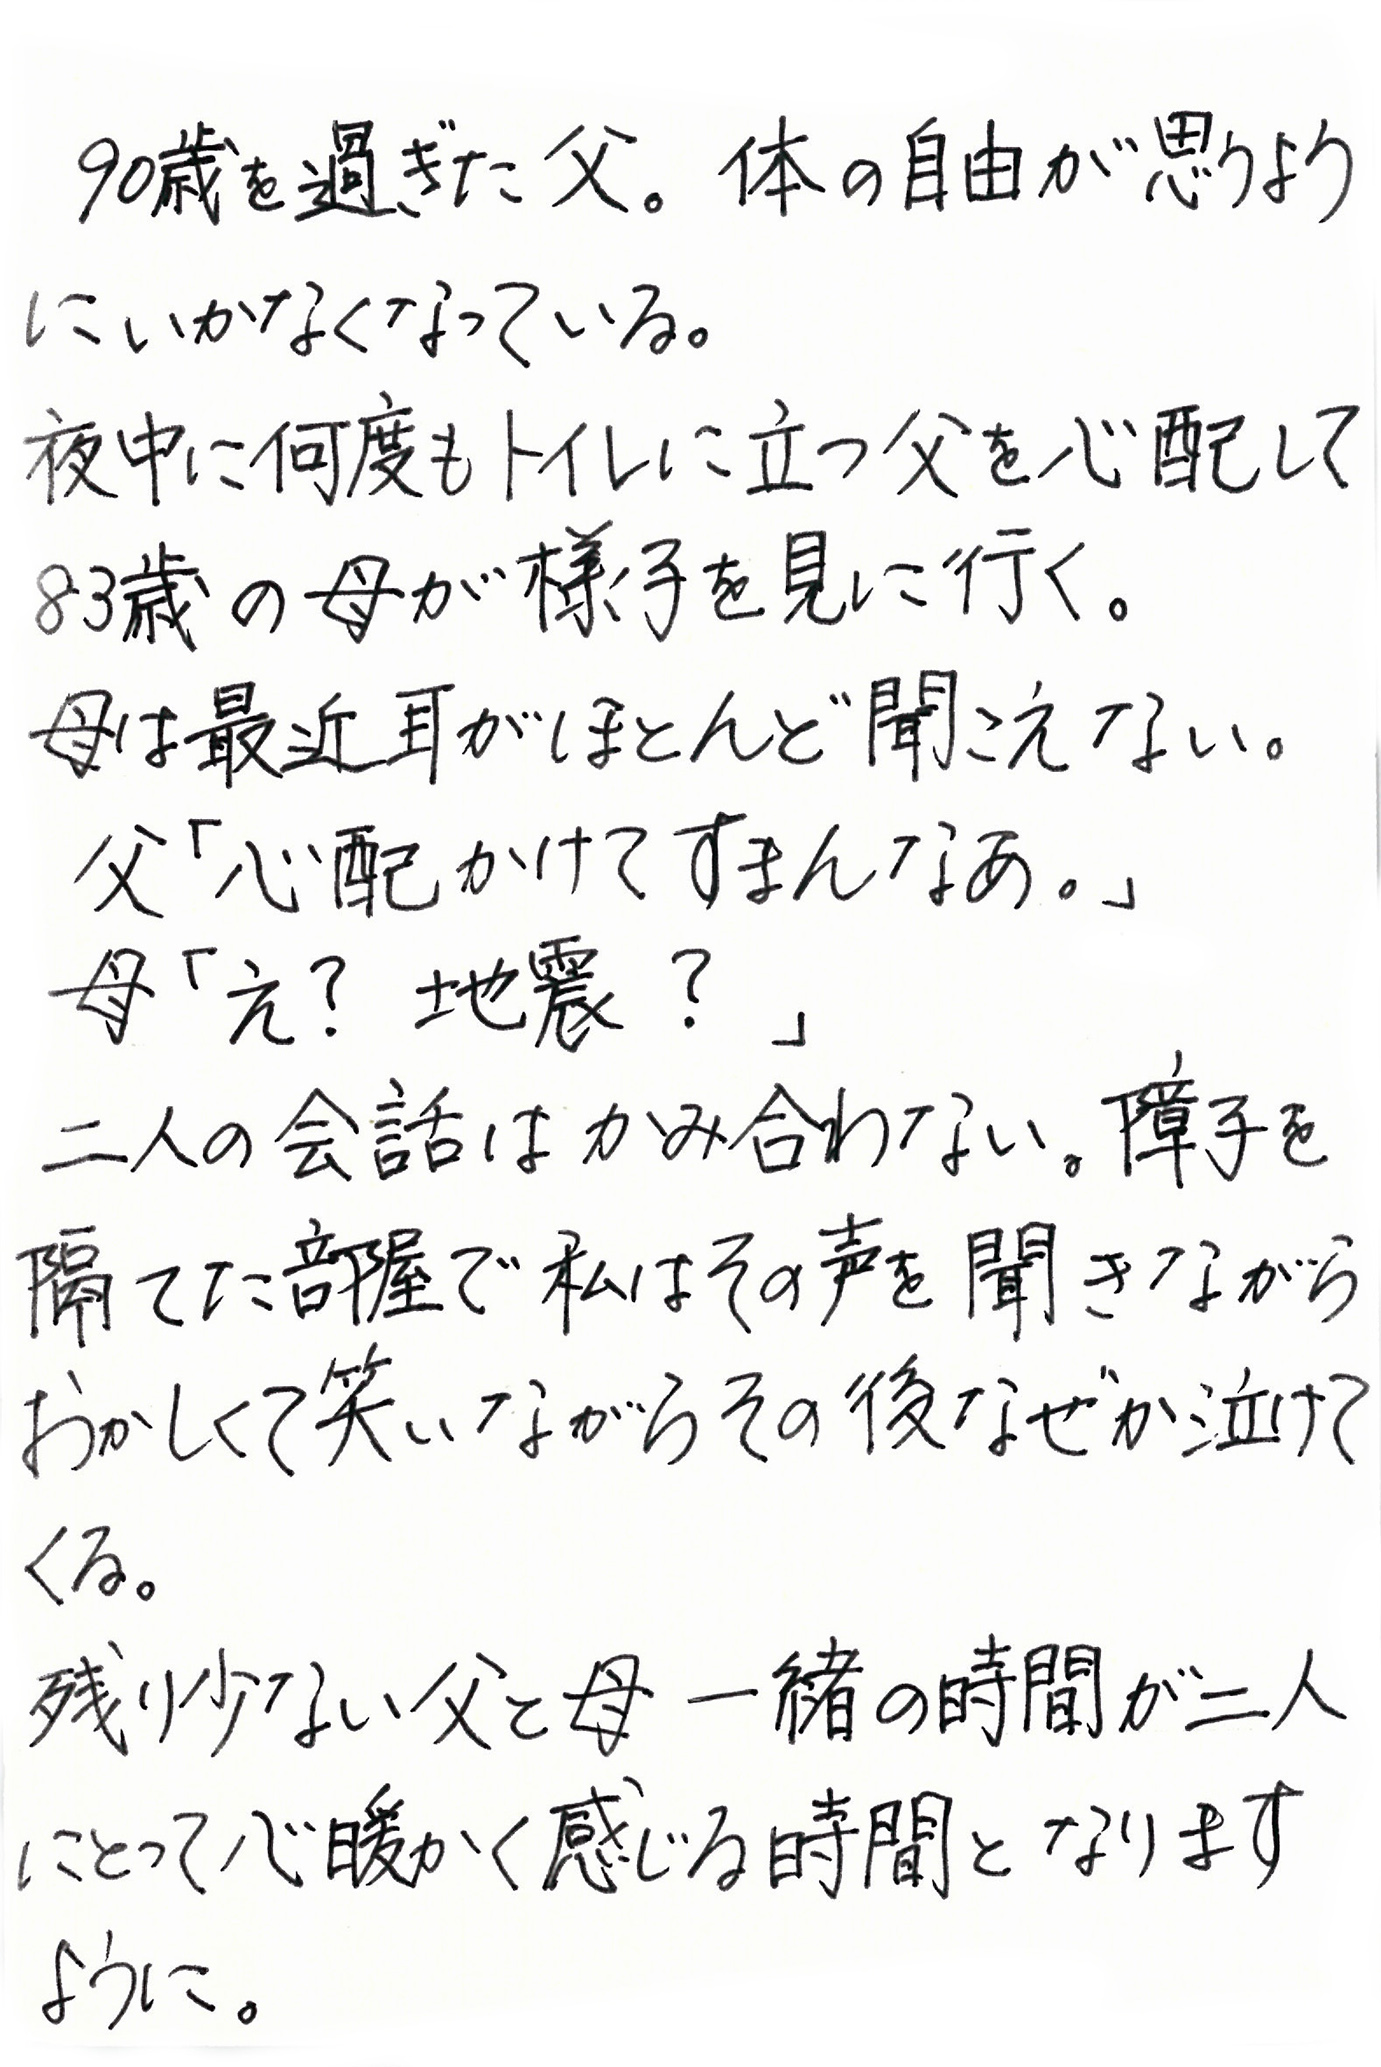 90歳を過ぎた父。体の自由が思うよう
にいかなくなっている。
夜中に何度もトイレに立つ父を心配して
83歳の母が様子を見に行く。
母は最近耳がほとんど聞こえない。
父「心配かけてすまんなあ。」
母「え? 地震?」
二人の会話はかみ合わない。障子を
隔てた部屋で私はその声を聞きながら
おかしくて笑いながらその後なぜか泣けて
くる。
残り少ない父と母一緒の時間が二人
にとって心暖かく感じる時間となります
ように。